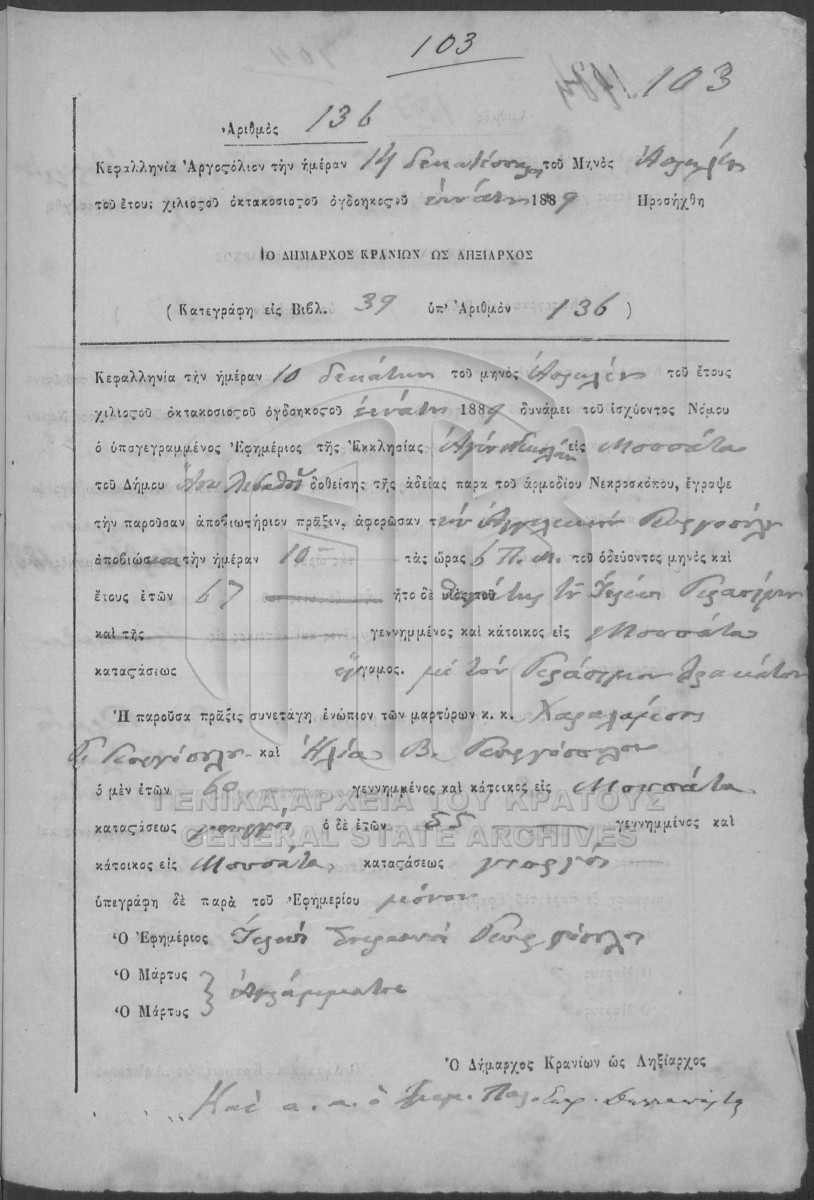 103
103
Ἀριθμὸς 136
Κεφαλληνία Ἀργοςόλιον τὴν ἡμέραν 14 δεκατέσσαρες τοῦ Μηνὸς Ἀπριλίου
τοῦ ἔτους χιλιοςοῦ ὀκτακοσιοςοῦ ὀγδοηκοςοῦ ἐννάτου 1889 Προσήχθη
Ὁ ΔΗΜΑΡΧΟΣ ΚΡΑΝΙΩΝ ΩΣ ΛΗΞΙΑΡΧΟΣ
(Κατεγράφη εἰς Βιβλ. 39 ὑπ' Ἀριθμὸν 136)
Κεφαλληνία τὴν ἡμέραν 10 δεκάτην τοῦ μηνὸς Ἀπριλίου τοῦ ἔτους
χιλιοςοῦ ὀκτακοσιοςοῦ ὀγδοηκοςοῦ ἐννάτου 1889 δυνάμει τοῦ ἰσχύοντος Νόμου
ὁ ὑπογεγραμμένος Ἐφημέριος τῆς Ἐκκλησίας Ἁγίου Νικολάου εἰς Μουσάτα
τοῦ Δήμου δοθείσης τῆς ἀδείας παρα τοῦ ἁρμοδίου Νεκροσκόπου, ἔγραψε
τὴν παροῦσαν ἀποβιωτήριον πρᾶξιν, ἀφορῶσαν τὴν Ἀγγελικὴν Γεωργοπούλου
ἀποβιώσασα τὴν ἡμέραν 10 τὰς ὥρας 6 Π.Μ. τοῦ ὁδεύοντος μηνὸς καὶ
ἔτους ἐτῶν 67 ἦτο δὲ υἱὸς τοῦ θυγάτηρ τοῦ Γερασίμου
καὶ τῆς γεννημμένος καὶ κάτοικος εἰς Μουσάτα
καταςάσεως ἔγγαμος. μὲ τὸν Γεράσιμον
Ἡ παροῦσα πρᾶξις συνετάγη ἐνώπιον τῶν μαρτύρων κ. κ. Χαραλάμπους
Γ. Γεωργόπουλου καὶ Ἠλία Β. Γεωργόπουλου
ὁ μὲν ἐτῶν 60 γεννημμένος καὶ κάτοικος εἰς Μουσάτα
καταςάσεως γεωργοί ὁ δὲ ἐτῶν 55 γεννημμένος καὶ
κάτοικος εἰς Μουσάτα, καταςάσεως γεωργοί
ὑπεγράφη δὲ παρὰ τοῦ Ἐφημερίου μόνον
Ὁ Ἐφημέριος Γεωργόπουλος
Ὁ Μάρτυς
Ὁ Μάρτυς } ἀγράμματοι
Ὁ Δήμαρχος Κρανίων ὡς Ληξίαρχος
Καὶ α. α. ὁ Γραμ.
ΓΕΝΙΚΑ ΑΡΧΕΙΑ ΤΟΥ ΚΡΑΤΟΥΣ
GENERAL STATE ARCHIVES